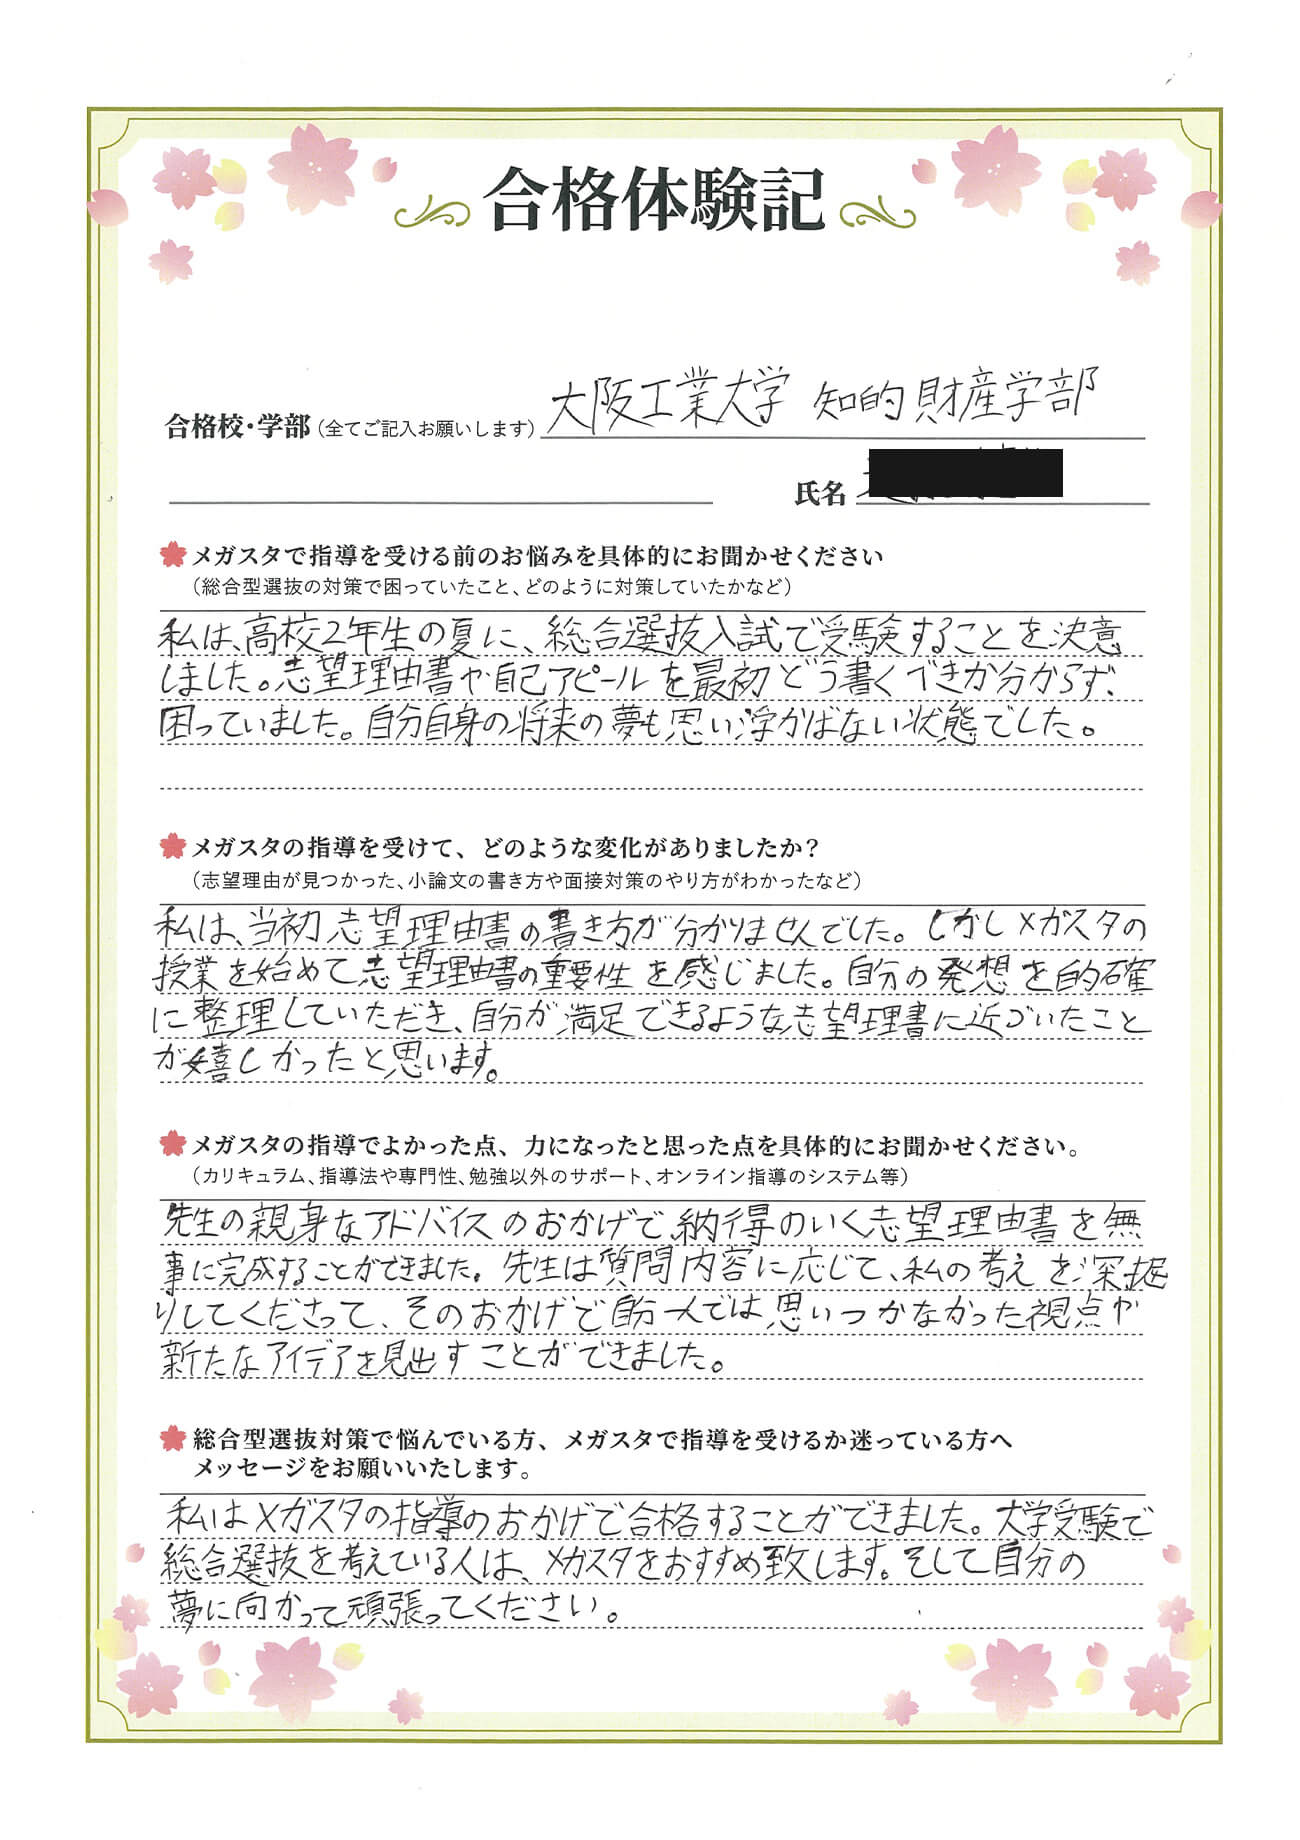 合格体験記
合格校・学部（全てご記入お願いします） 大阪工業大学 知的財産学部
氏名
メガスタで指導を受ける前のお悩みを具体的にお聞かせください
（総合型選抜の対策で困っていたこと、どのように対策していたかなど）
私は、高校2年生の夏に、総合選抜入試で受験することを決意
しました。志望理由書や自己アピールを最初どう書くべきか分からず、
困っていました。自分自身の将来の夢も思い浮かばない状態でした。
メガスタの指導を受けて、どのような変化がありましたか？
（志望理由が見つかった、小論文の書き方や面接対策のやり方がわかったなど）
私は、当初志望理由書の書き方が分かりませんでした。しかしメガスタの
授業を始めて志望理由書の重要性を感じました。自分の発想を的確
に整理していただき、自分が満足できるような志望理書に近づいたこと
が嬉しかったと思います。
メガスタの指導でよかった点、力になったと思った点を具体的にお聞かせください。
（カリキュラム、指導法や専門性、勉強以外のサポート、オンライン指導のシステム等）
先生の親身なアドバイスのおかげで、納得のいく志望理由書を無
事に完成することができました。先生は質問内容に応じて、私の考えを深掘
りしてくださって、そのおかげで自分一人では思いつかなかった視点や
新たなアイデアを見出すことができました。
総合型選抜対策で悩んでいる方、メガスタで指導を受けるか迷っている方へ
メッセージをお願いいたします。
私はメガスタの指導のおかげで合格することができました。大学受験で
総合選抜を考えている人は、メガスタをおすすめ致します。そして自分の
夢に向かって頑張ってください。